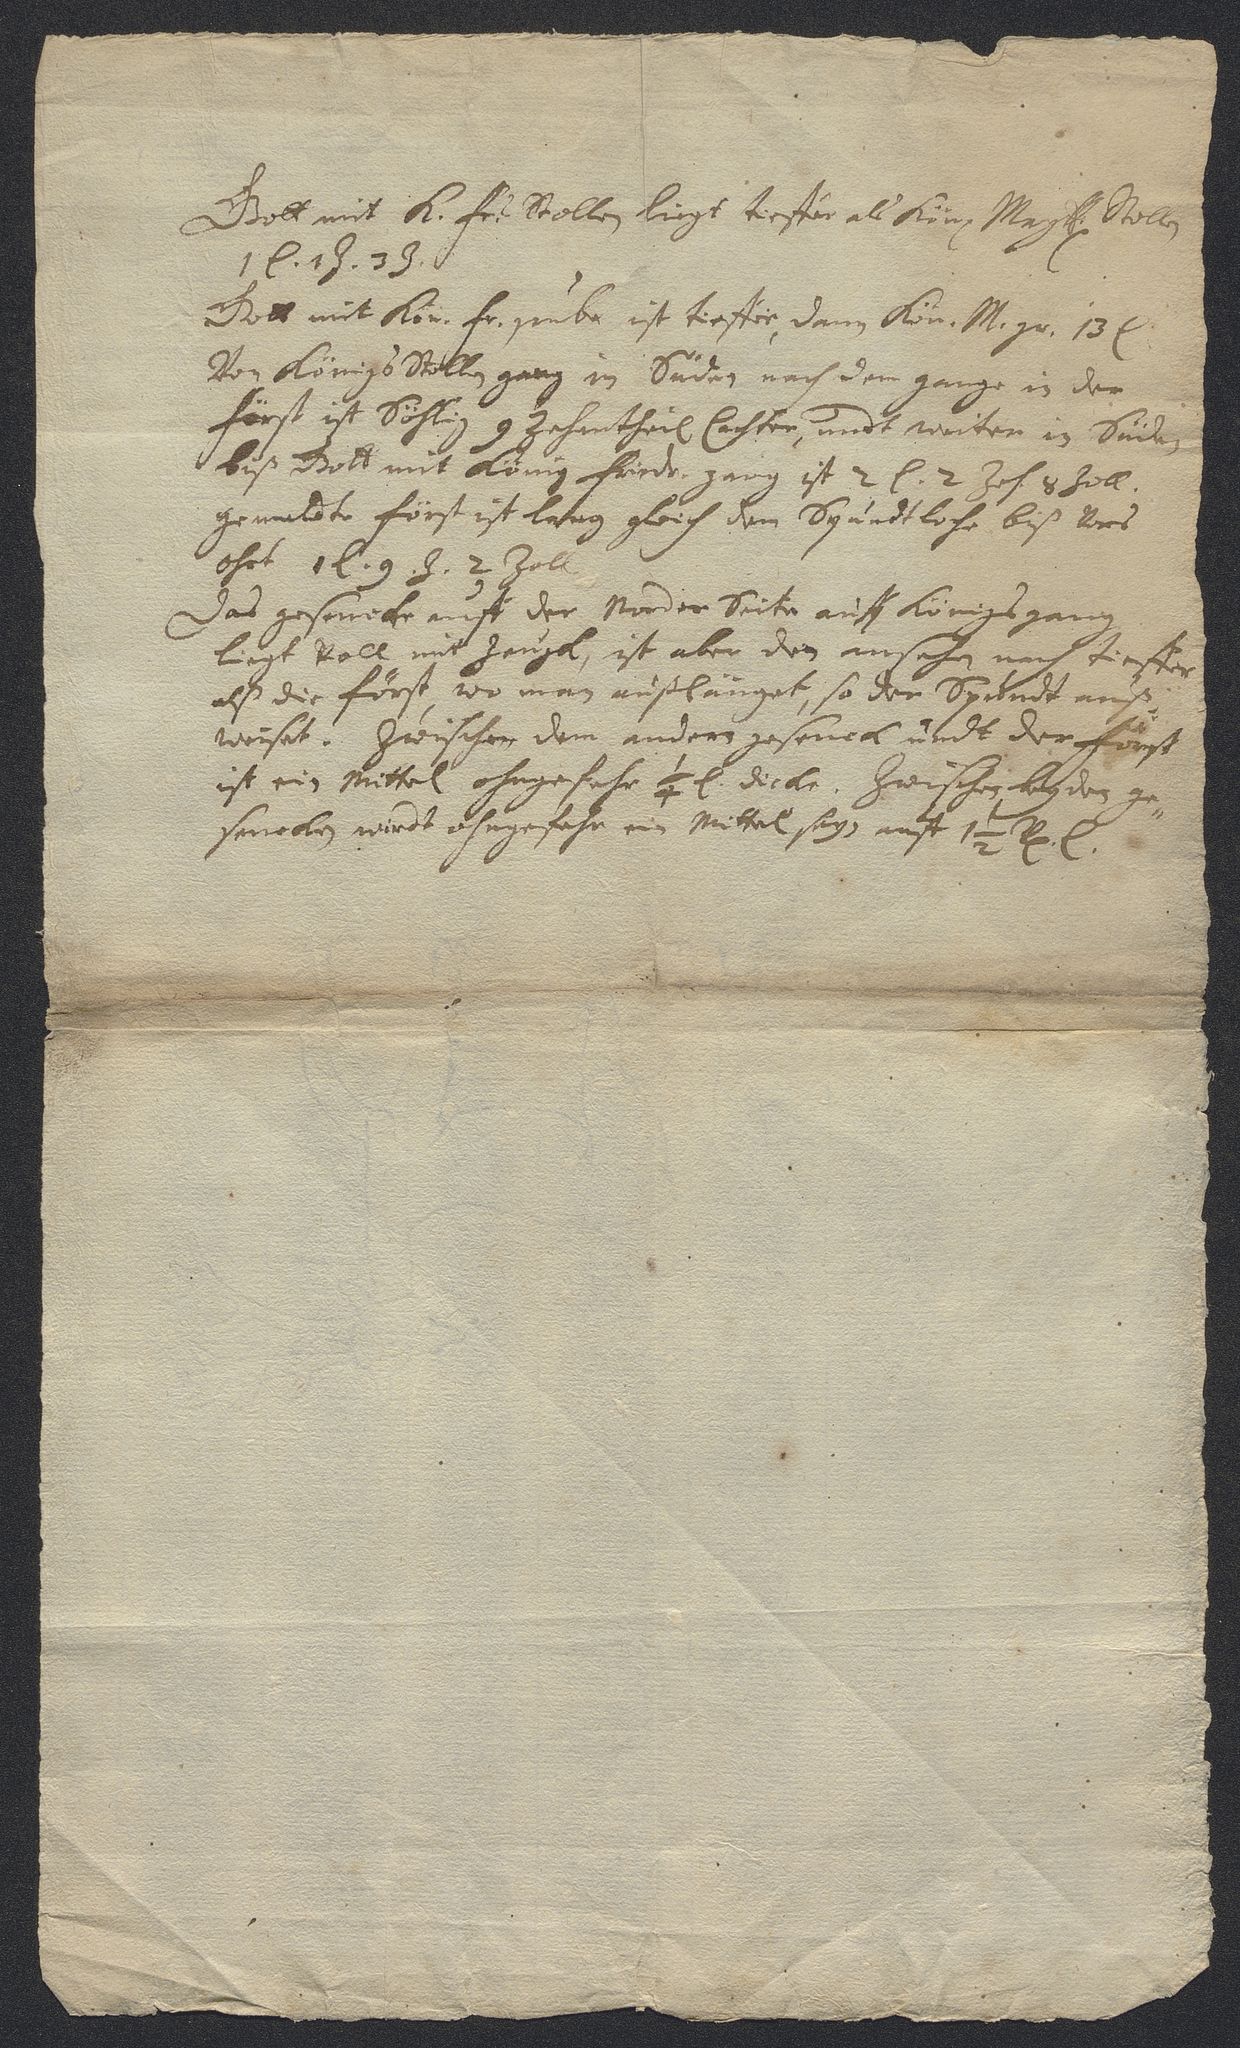 Gott mit K. Fr: Stollen liegt tieffer als Kön: Maytt: Stollen
1 l. 1 Z. 3 Z.
Gott mit Kön. fr. grube ist tieffer, dann Kön. M. gr. 13 l
Von Königs Stollen gang in Süden nach dem gange in der
först ist Söhlig 9 Zehentheil Lachter, undt weiter in Süden
biß Gott mit König friedr. gang ist 2 l. 2 Zeh 8 Zoll.
gemeldte först ist lang gleich dem Spundtloche biß Vors
ohrt 1 l. 9. Z. 2 Zoll
Das gesencke auff der Norder Seite auff Königs gang
liegt Voll mit Zeugh, ist aber den ansehen nach tieffer
alß die först, wo man außlänget, so der Spundt auß=
weiset. Zwischen dem andern gesenck undt der först
ist ein Mittel ohngefehr 1/4 l. dicke. Zwischen beyden ge=
sencken wirdt ohngefehr ein Mittel seyn auff 1 1/2 l.